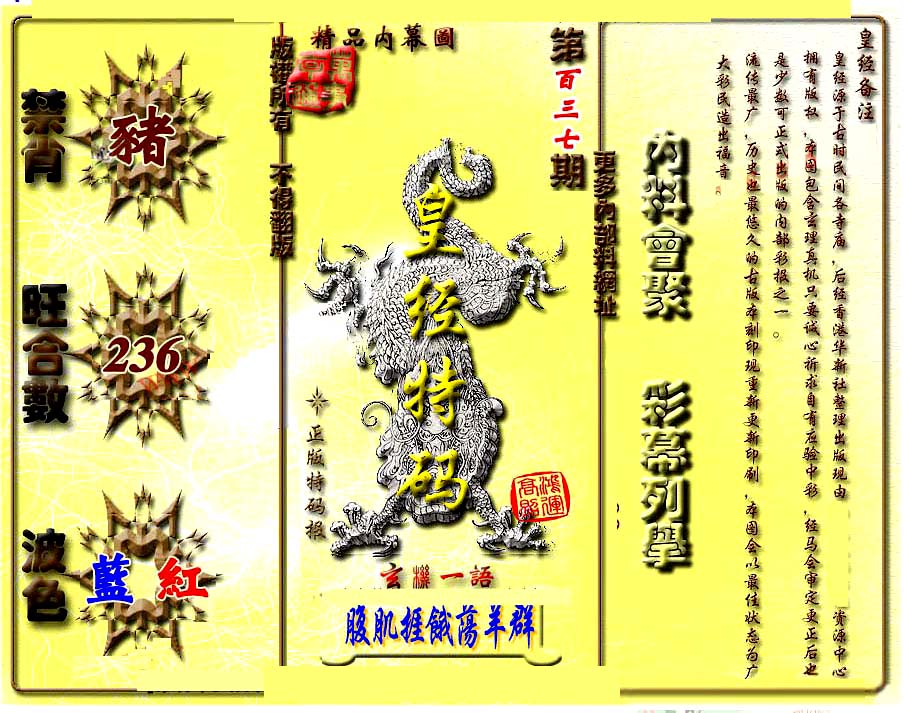 精品内幕圖
第百三七期
版權所有 不得翻版
更多內部料網址
禁肖
豬
旺合數
236
波色
藍 紅
皇经特码
正版特码报
鴻運高照
玄機一語
腹肌捱餓蕩羊群
內料會聚
彩幕列舉
皇经备注
皇经源于古时民间各寺庙，后经香港华新社整理出版现由 资源中心
拥有版权，本图包含玄理真机只要诚心祈求自有应验中彩，经马会审定更正后也
是少数可正式出版的内部彩报之一。
流传最广，历史也最悠久的古版本刻印现重新更新印刷，本图会以最佳状态为广
大彩民造出福音